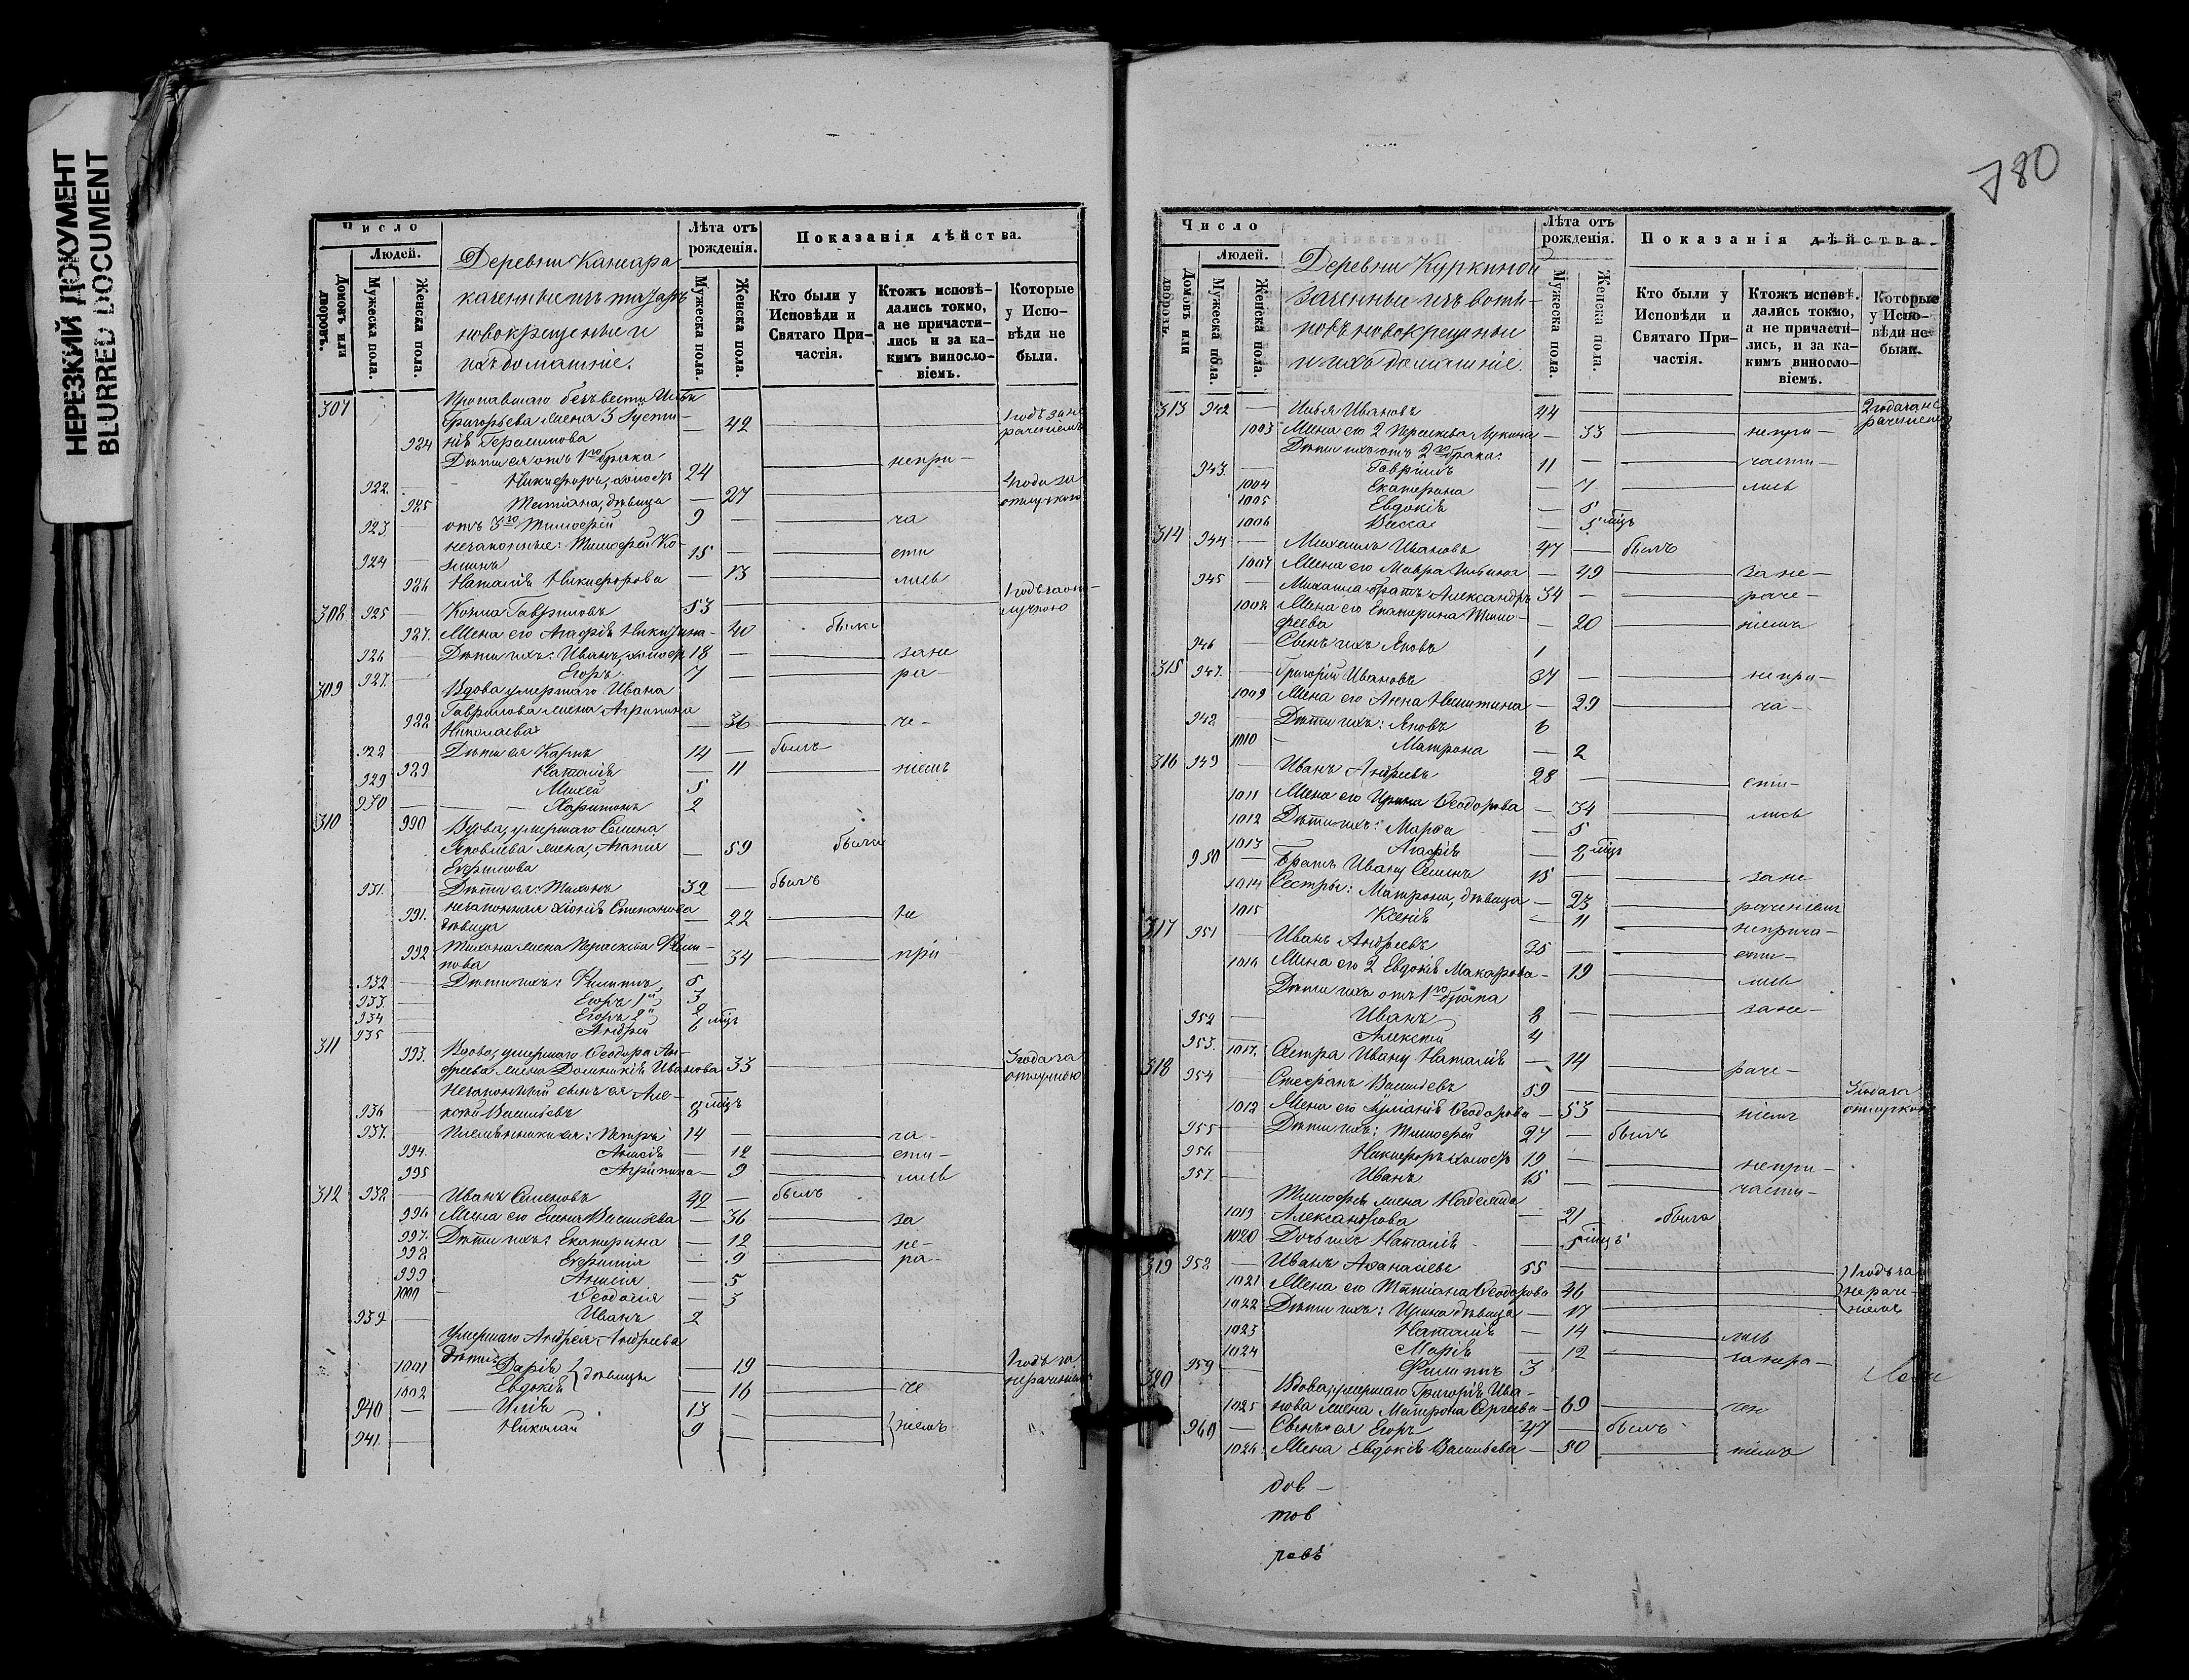 НЕРЕЗКИЙ ДОКУМЕНТ
BLURRED DOCUMENT
Число
Людей.
Домовъ или дворовъ.
Мужеска пола.
Женска пола.
Деревни
новокрещеные и
ихъ домашніе.
Лѣта отъ рожденія.
Мужеска пола.
Женска пола.
Показанія дѣйства.
Кто были у Исповѣди и Святаго Причастія.
Ктожъ исповѣдались токмо, а не причастились и за какимъ винословіемъ.
Которые у Исповѣди не были.
307 Пропавшаго безъ вести
Григорьева жена 3
924 Герасимова — 42
Дѣти ея отъ 1го брака непри-
922 Никифоръ, холостъ 24
925 Татіана, дѣвица — 27
923 отъ 3го Тимофей 9 — ча
незаконные: Тимофей Ко-
924 15 — сти
926 Наталія Никифорова — 13 лись
308 925 Козма Гавриловъ 53 —
927. Жена его Агафія — 40 была
926 Дѣти ихъ: Иванъ, холостъ 18 — зане
927. Егоръ 7 — ра-
309 Вдова, умершаго Ивана
Гаврилова жена Агрипина
Николаева — 36 че-
Дѣти ея Карпъ 14 — былъ
929 Наталія — 11 ніемъ
929 Михей 5
930 Харитонъ 2
310 990 Вдова, умершаго Семена
Яковлева жена, Агапія — 59 была
Ефимова
931. Дѣти ея: Тихонъ 32 — былъ
незаконная Хіонія Степанова
991. дѣвица — 22 не
992 Тихона жена Параскева Фили-
пова — 34 при
932 Дѣти ихъ: Филиппъ 5
933. Егоръ 1й 3
934 Егоръ 2й 2
935 Андрей 6 мцъ
311 993. Вдова, умершаго Ѳеодора Ан-
дреева жена Домникія Иванова 33 3 года за отлучкою
Незаконный сынъ ея Але-
936 ксѣй Васильевъ 8 мцъ
937. Племянники ея: Петръ 14 — ча-
994. Анисія — 12 сти-
995 Агрипина — 9 лись
312 938 Иванъ Семеновъ 42 — былъ
996 Жена его Елена Васильева — 36 за
997. Дѣти ихъ: Екатерина — 12 не-
998 Евфимія — 9 ра-
999 Анисія — 5
1000 Ѳеодосія — 3
939 Иванъ 2
Умершаго Андрея Андреева
дѣти:
1001 Дарія } дѣвицы — 19 1 годъ за нераченіемъ
1002 Евдокія — 16 че
940 Илія 13 —
941. Николай 9 — ніемъ
780
Число
Людей.
Домовъ или дворовъ.
Мужеска пола.
Женска пола.
Деревни Куркиной
новокрещеные
и ихъ домашніе.
Лѣта отъ рожденія.
Мужеска пола.
Женска пола.
Показанія дѣйства.
Кто были у Исповѣди и Святаго Причастія.
Ктожъ исповѣдались токмо, а не причастились, и за какимъ винословіемъ.
Которые у Исповѣди не были.
313 942 — Илья Ивановъ 44 —
1003 Жена его 2 Параскева Лукина — 33 непри-
Дѣти ихъ отъ 2го брака:
943. — Гавріилъ 11 — части-
1004 Екатерина — 7 лись
1005 Евдокія — 5
1006 Васса — 5 мцъ
314 944 — Михаилъ Ивановъ 47 — былъ
1007 Жена его Мавра Ильина — 49 зане-
945 — Михаила братъ Александръ 34 — раче-
1008 Жена его Екатерина Тимо-
феева — 20 ніемъ
946 Сынъ ихъ Яковъ 1
315 947. — Григорій Ивановъ 37 — непри-
1009 Жена его Анна Никитина — 29 ча-
948 Дѣти ихъ: Яковъ 6
1010 Матрона — 2
316 949 — Иванъ Андреевъ 28 — сти-
1011 Жена его Ирина Ѳеодорова — 34 лись
1012 Дѣти ихъ: Марѳа — 5
1013 Агафія — 8 мцъ
950 — Братъ Ивану Семенъ 15 — зане
1014 Сестры: Матрона, дѣвица — 23 раченіемъ
1015 Ксенія — 11 неприча-
317 951 — Иванъ Андреевъ 35 — сти-
1016 Жена его 2 Евдокія Макарова — 19 лись
Дѣти ихъ отъ 1го брака
952 — Иванъ 8 — зане-
953. — Алексѣй 4
1017. Сестра Ивану Наталія — 14 раче-
318 954 Стефанъ Васильевъ 59 — 3 года за отлучкою
1018 Жена его Іуліанія Ѳеодорова — 53 ніемъ
955 — Дѣти ихъ: Тимофей 27 — былъ
956 Никифоръ холостъ 19 — непри-
957. Иванъ 15 — части-
Тимофея жена Надежда
1019 Александрова — 21 была
1020 Дочь ихъ Наталія — 5 мцъ
319 958 — Иванъ Аѳанасьевъ 55 — 1 годъ за нераченіемъ
1021 Жена его Татіана Ѳеодорова 46
1022 Дѣти ихъ: Ирина дѣвица — 17
1023 Наталія — 14 лись
1024 Марія — 12 занера-
959 — Филиппъ 3
320 Вдова, умершаго Григорія Ива-
1025 нова жена Матрона Сергеева — 69 че
960 — Сынъ ея Егоръ 47 — былъ
1026 Жена Евдокія Васильева — 50 ніемъ
дов-
тов